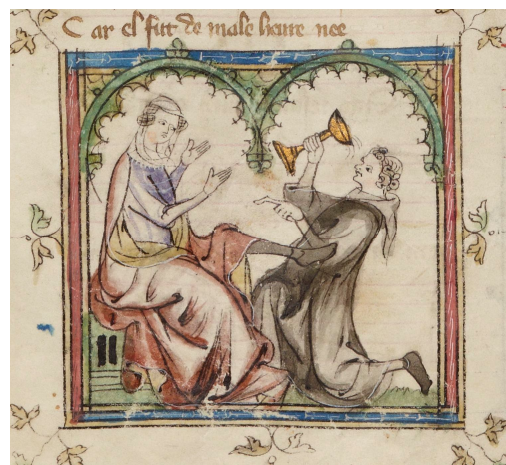 Car el fut de male heure nee